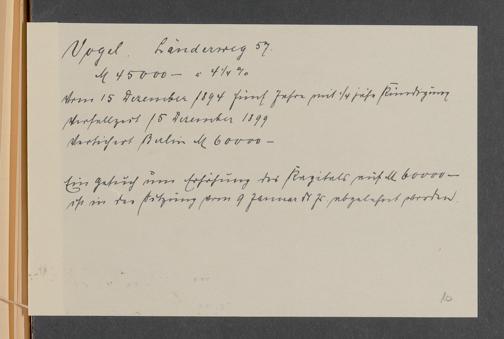 Vogel. Länderweg 57.
M 45000 — a 4¼ %
vom 15 Dezember 1894 fünf Jahre mit ¼ jähr Kündigung
Verfallzeit 15 Dezember 1899
Versichert Berlin M 60000 —
Ein Gesuch um Erhöhung des Kapitals auf M 60000 —
ist in der Sitzung vom 9 Januar d. Js. abgelehnt worden.
10